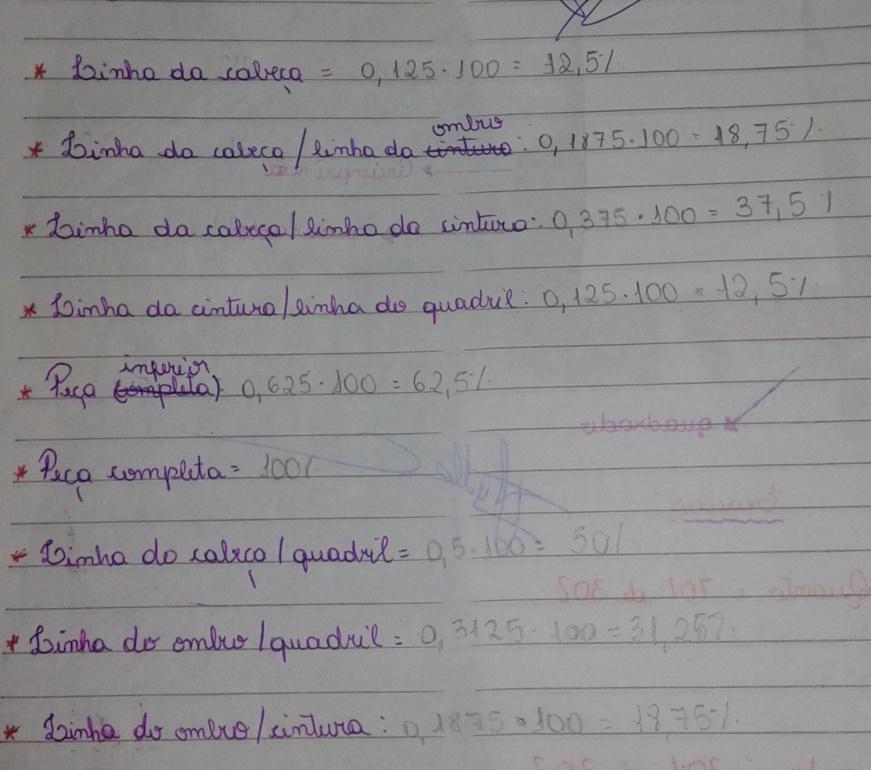 * Linha da cabeça = 0,125 · 100 = 12,5%
* Linha da cabeça / linha da cintura ombro : 0,1875 · 100 = 18,75%.
* Linha da cabeça / linha da cintura : 0,375 · 100 = 37,5%
* Linha da cintura / linha do quadril : 0,125 · 100 = 12,5%.
* Peça (completa) inferior 0,625 · 100 = 62,5%.
* Peça completa = 100%
* Linha da cabeça / quadril = 0,5 · 100 = 50%.
* Linha do ombro / quadril = 0,3125 · 100 = 31,25%.
* Linha do ombro / cintura : 0,1875 · 100 = 18,75%.